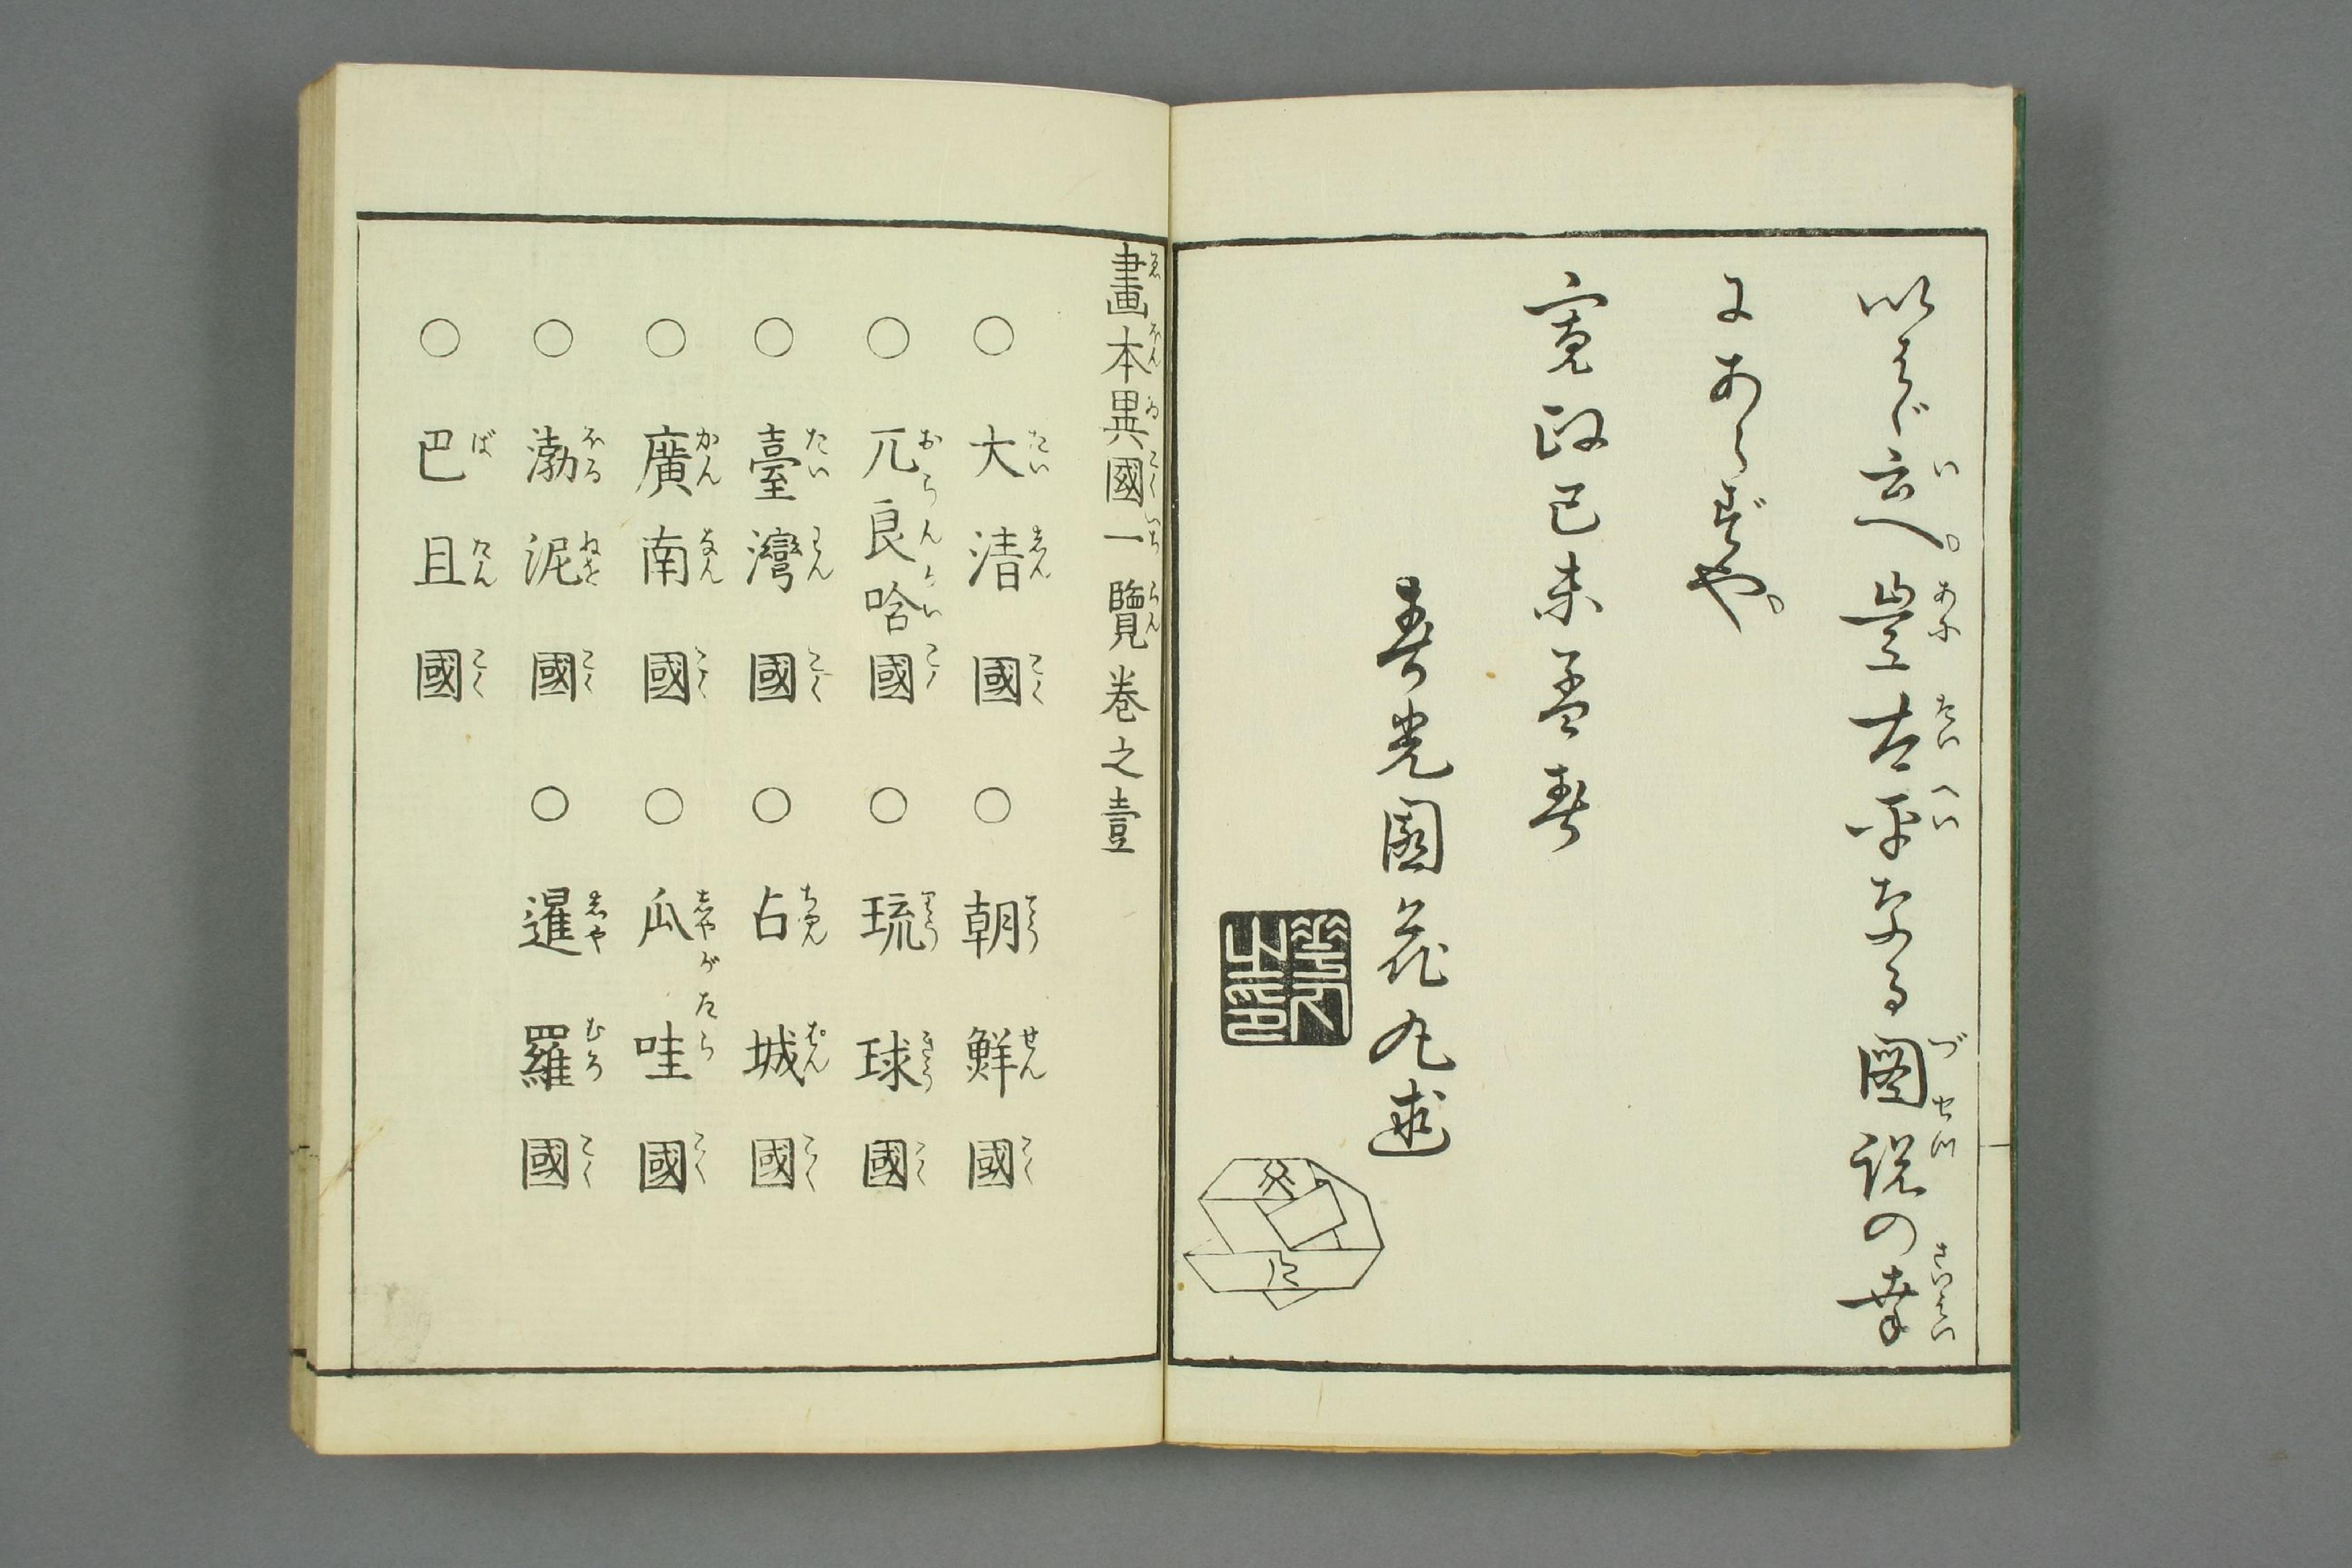 以ならバ云へ。豈太平なる圖説の幸
にあらずや。
寛政己未孟春
春光園花丸述
畫本異國一覽巻之壹
○大清國 ○朝鮮國
○兀良哈國 ○琉球國
○臺灣國 ○占城國
○廣南國 ○瓜哇國
○渤泥國 ○暹羅國
○巴且國